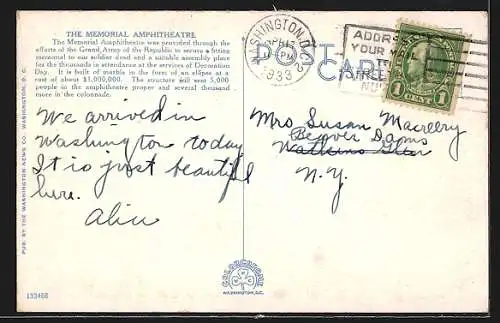 THE MEMORIAL AMPHITHEATRE
The Memorial Amphitheatre was provided through the
efforts of the Grand Army of the Republic to secure a fitting
memorial to our soldier dead and a suitable assembly place
for the thousands in attendance at the services of Decoration
Day. It is built of marble in the form of an ellipse at a
cost of about $1,000,000. The structure will seat 5,000
people in the amphitheatre proper and several thousand
more in the colonnade.
We arrived in
Washington today
It is just beautiful
here.
Alice
PUB. BY THE WASHINGTON NEWS CO. WASHINGTON, D. C.
133466
POST
CARD
WASHINGTON, D.C. 2
PM
1933
ADDRESS
YOUR MAIL
TO
STREET AND
NU
1 CENT 1
Mrs Susan Macreery
Beaver Dams
Watkins Glen
N.Y.
COLORCHROME
WASHINGTON, D.C.